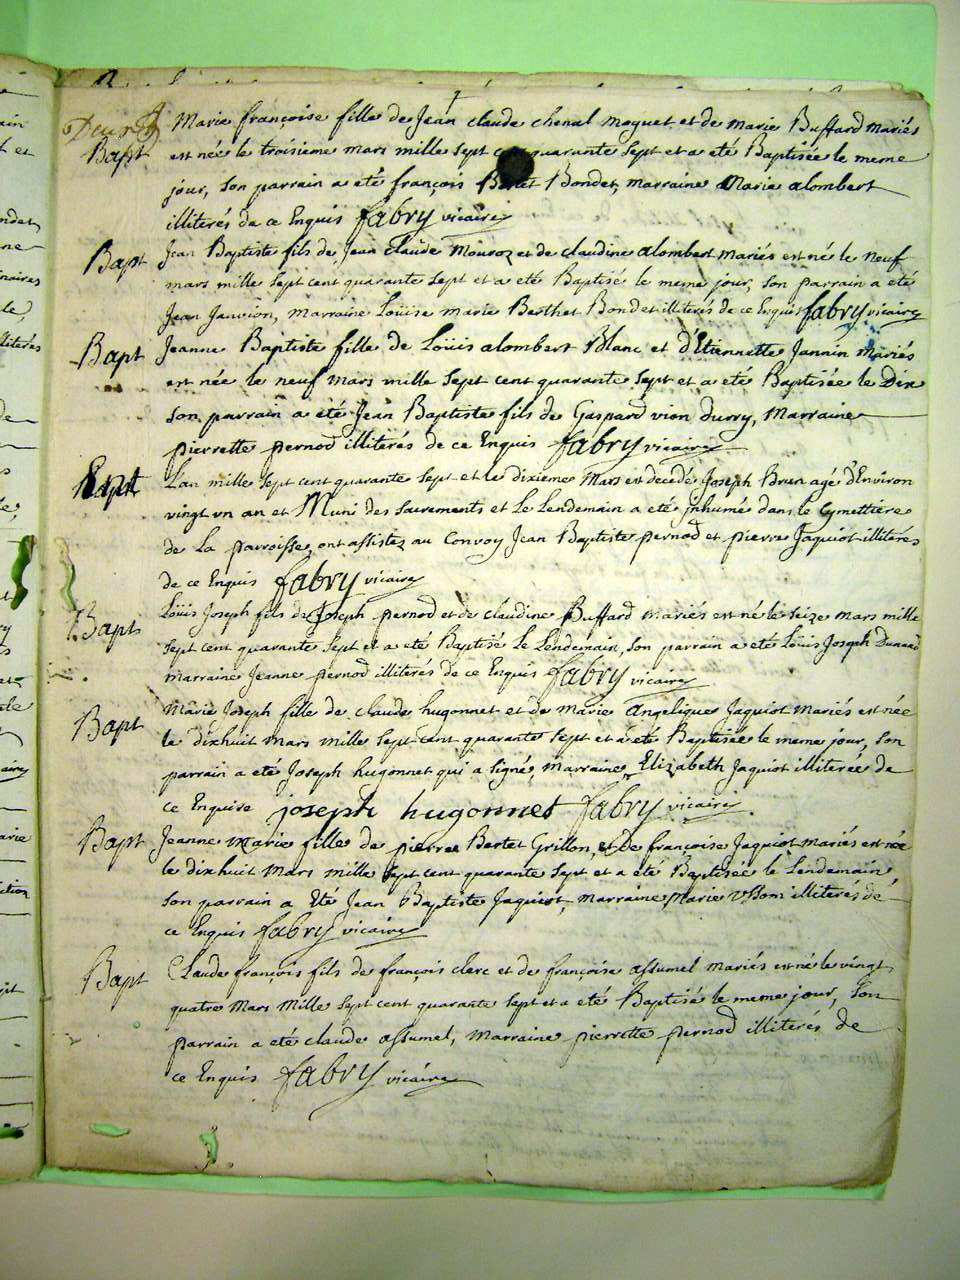 Bapt
Marie françoise fille de Jean claude chenal moguet et de marie Buffard mariés
est née le troisieme mars mille sept cent quarante sept et a eté Baptisée le meme
jour, son parrain a eté françois Bertet Bondet, marraine Marie alombert
illiterés de ce Enquis fabry vicaire
Bapt
Jean Baptiste fils de Jean claude Mouroz et de claudine alombert mariés est né le neuf
mars mille sept cent quarante sept et a eté Baptisé le meme jour, son parrain a eté
Jean Janvion, marraine Loüise marie Berthet Bondet illiterés de ce Enquis fabry vicaire
Bapt
Jeanne Baptiste fille de Loüis alombert Blanc et d'Etiennette Jannin mariés
est née le neuf mars mille sept cent quarante sept et a eté Baptisée le Dix
son parrain a eté Jean Baptiste fils de Gaspard vion Durry, Marraine
pierrette pernod illiterés de ce Enquis fabry vicaire
Lan mille sept cent quarante sept et le dixieme Mars est decedé Joseph Brun agé d'Environ
vingt un an et Muni des sacrements et Le Lendemain a eté jnhumé dans le Cymettiere
de La parroisse, ont assistez au Convoy Jean Baptiste pernod et pierre Jaquiot illiterés
de ce Enquis fabry vicaire
Bapt
Loüis Joseph fils de Joseph pernod et de claudine Buffard mariés est né le seize mars mille
sept cent quarante sept et a eté Baptisé Le Lendemain, son parrain a eté Loüis Joseph Dunand
marraine Jeanne pernod illiterés de ce Enquis fabry vicaire
Bapt
Marie Joseph fille de claude hugonnet et de marie angelique Jaquiot mariés est née
le dixhuit mars mille sept cent quarante sept et a eté Baptisée le meme jour, son
parrain a eté Joseph hugonnet qui a signé, marraine Elizabeth Jaquiot illiterée de
ce Enquise joseph hugonnet fabry vicaire
Bapt
Jeanne marie fille de pierre Bertet Grillon, et De françoise Jaquiot mariés est née
le dixhuit mars mille sept cent quarante sept et a eté Baptisée le Lendemain,
son parrain a Eté Jean Baptiste Jaquiot, marraine Marie illiterés de
ce Enquis fabry vicaire
Bapt
Claude françois fils de françois clerc et de françoise assumel mariés est né le vingt
quatre Mars Mille sept cent quarante sept et a eté Baptisé le meme jour, son
parrain a eté claude assumel, marraine pierrette pernod illiterés de
ce Enquis fabry vicaire